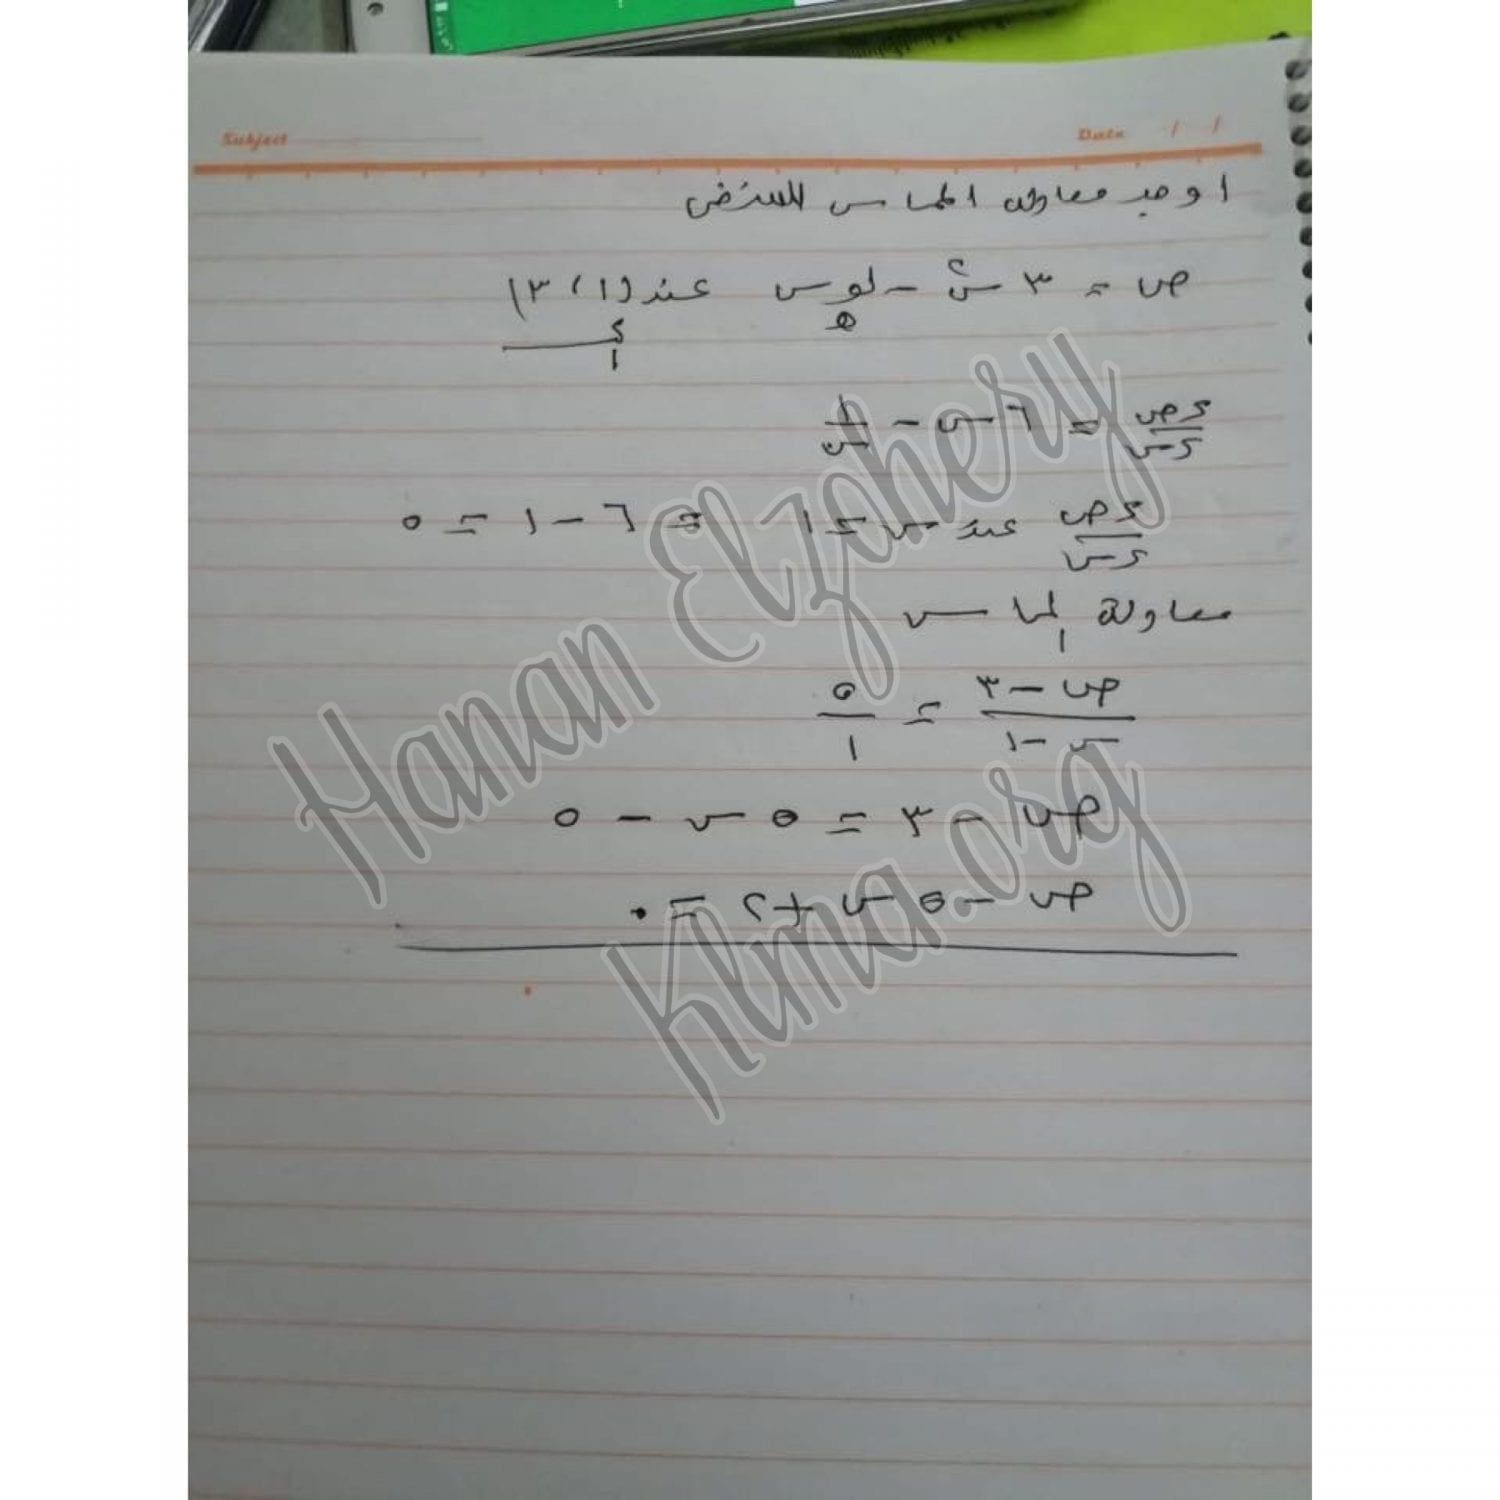 Subject
Date / /
اوجد معادلة المماس للمنحنى
ص = ٣ س٢ - لو س عند (١ ، ٣)
هـ
ءص = ٦ س - ١
ءس س
ءص عند س = ١ = ٦ - ١ = ٥
ءس
معادلة المماس
ص - ٣ = ٥
س - ١ ١
ص - ٣ = ٥ س - ٥
ص - ٥ س + ٢ = ٠
Hanan Elzohery
Klma.org